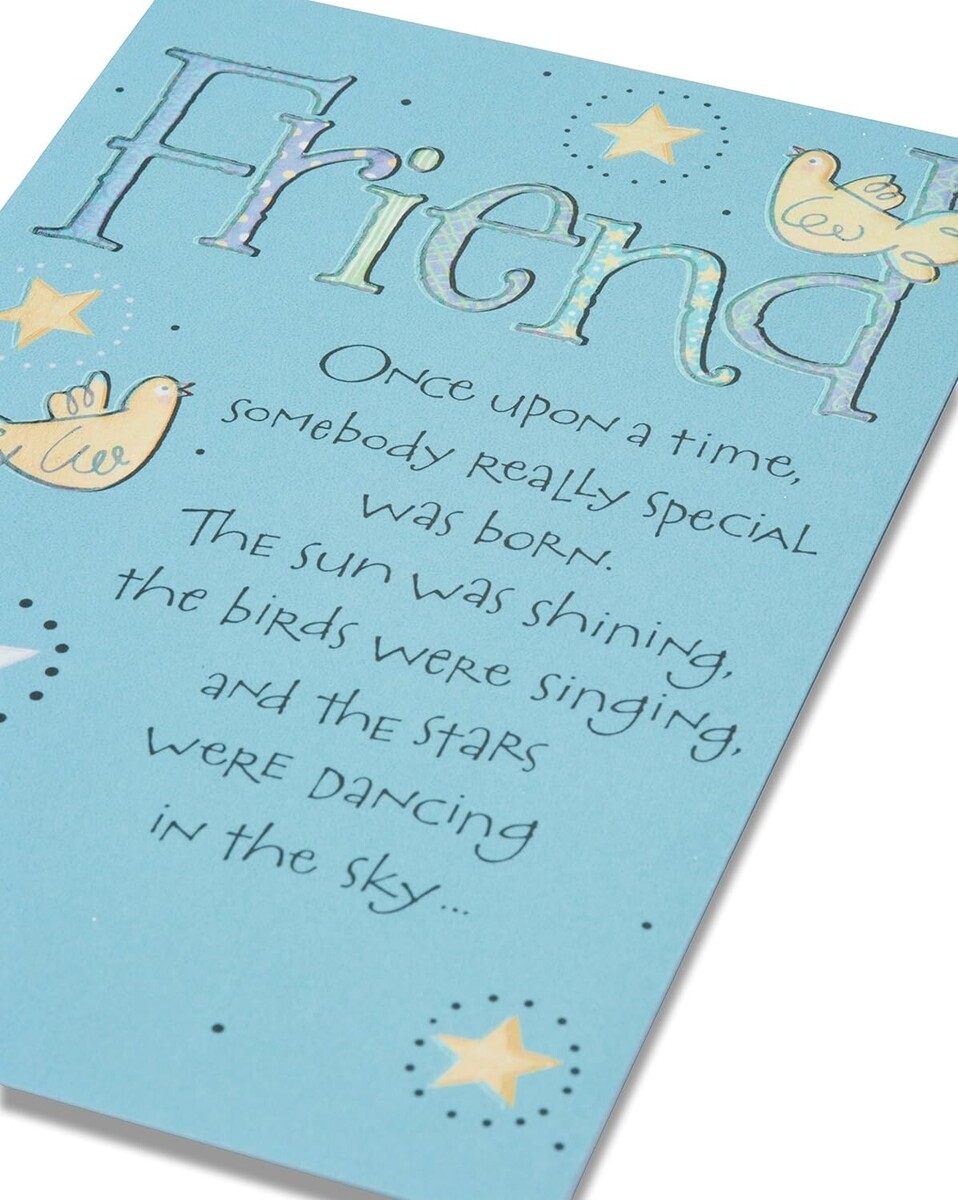 Friend
Once upon a time,
somebody really special
was born.
The sun was shining,
the birds were singing,
and the stars
were dancing
in the sky...